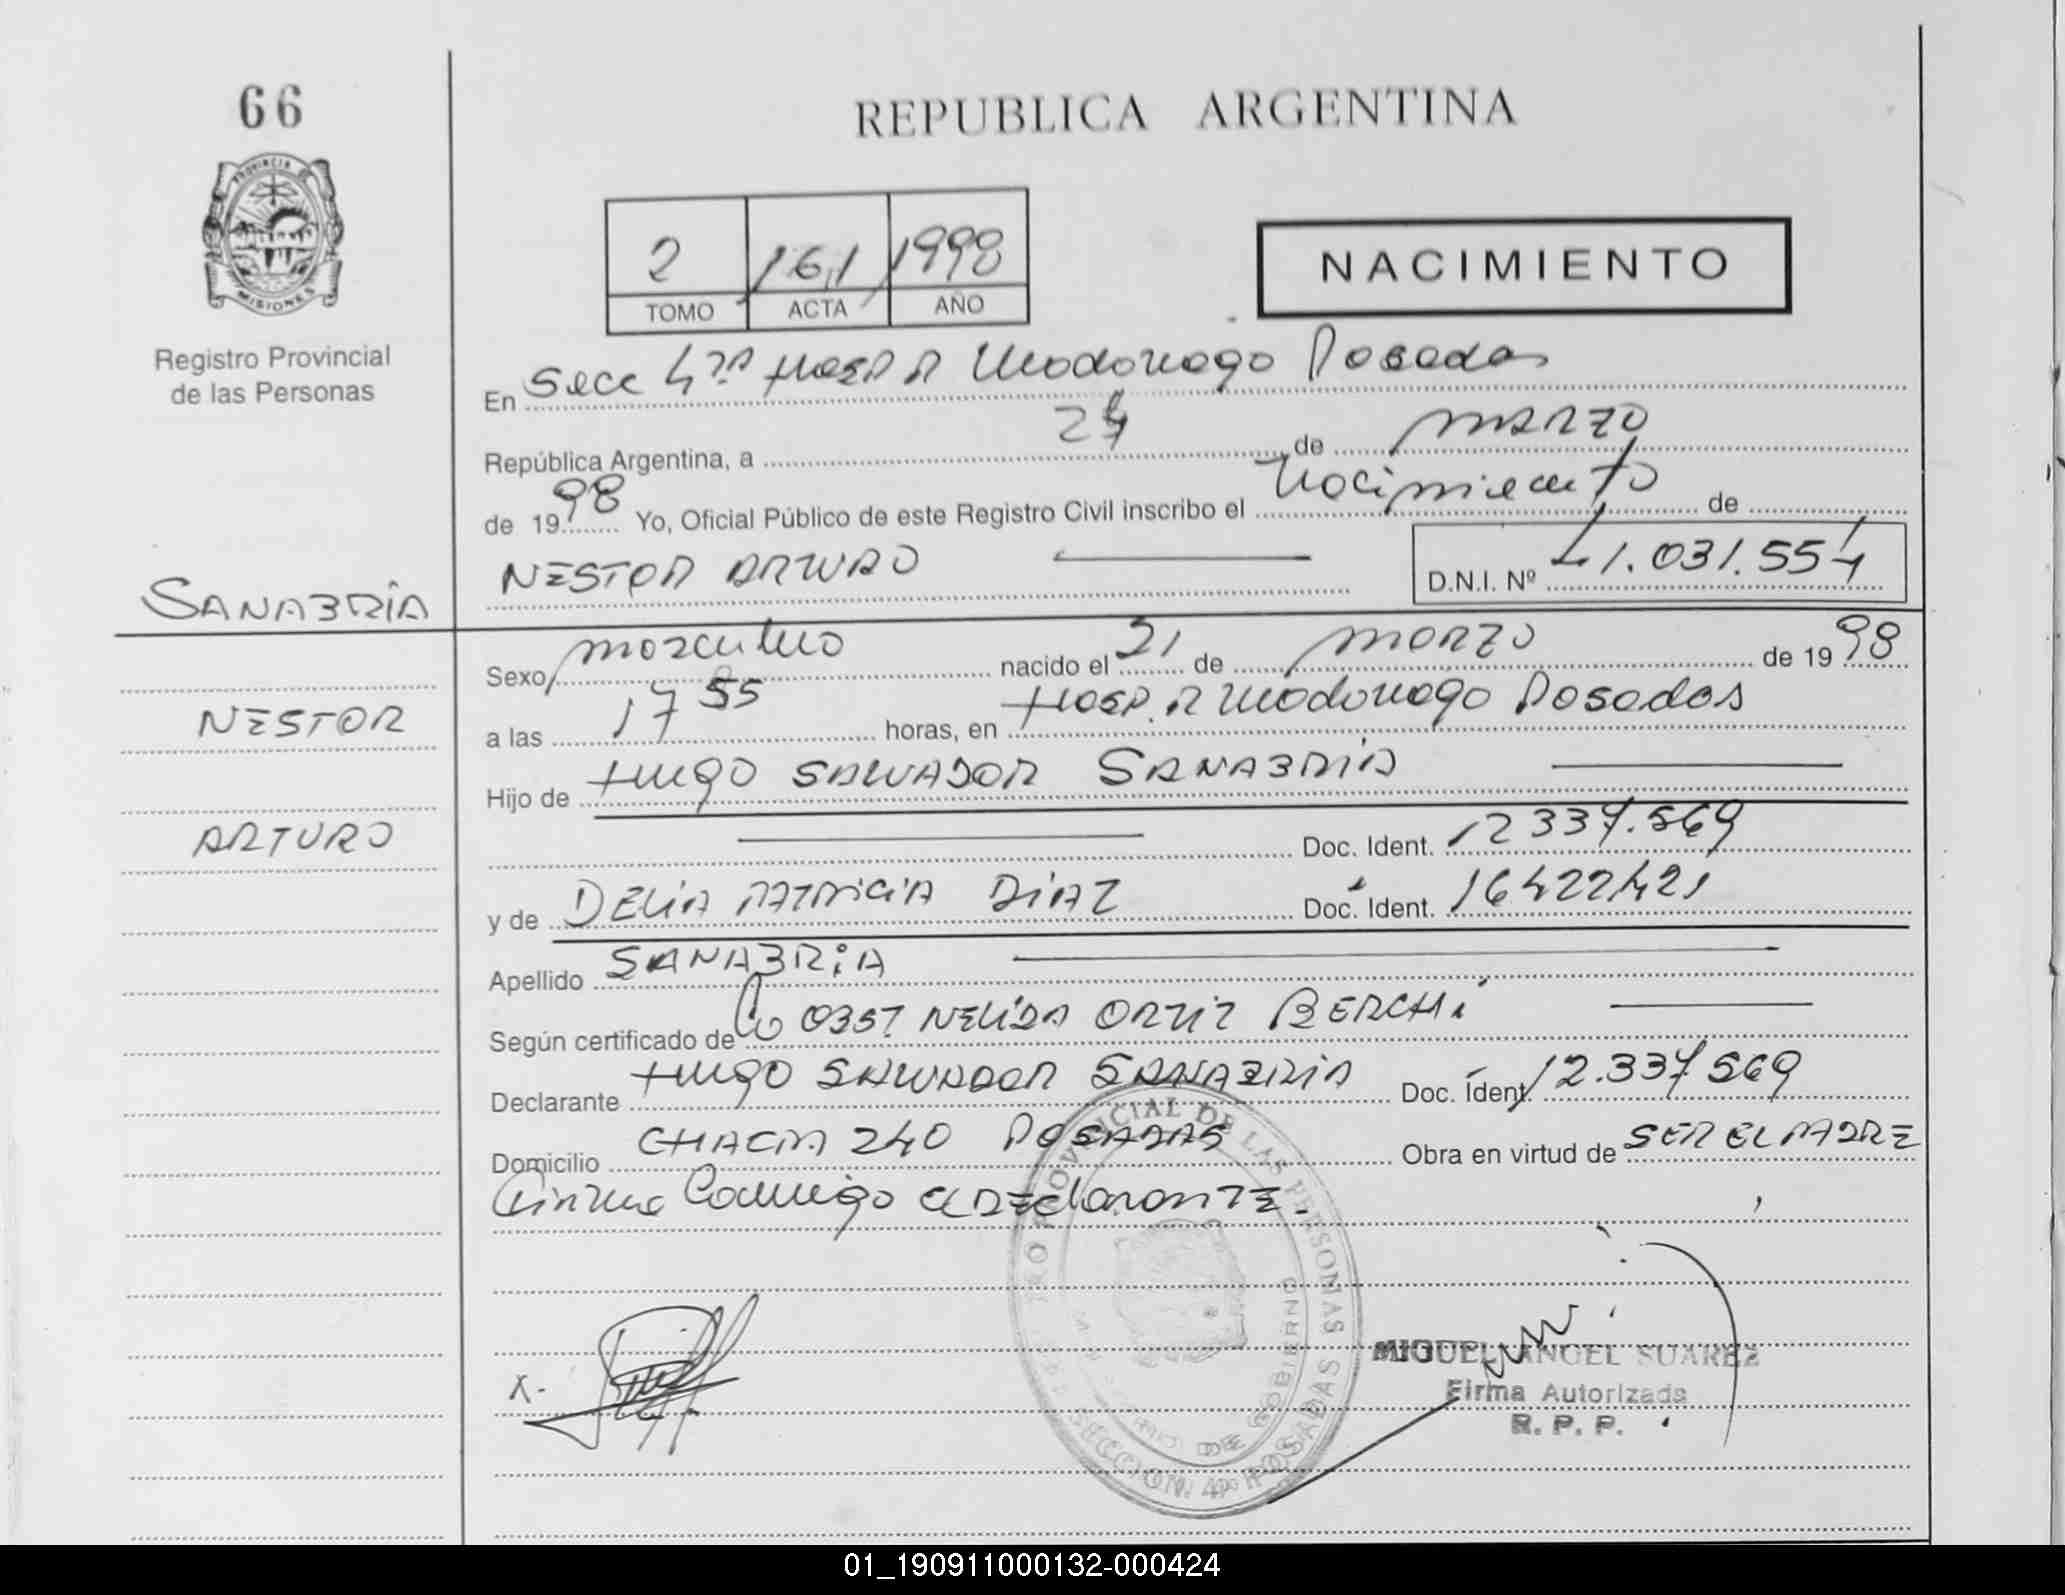 66
REPUBLICA ARGENTINA
PROVINCIA DE
MISIONES
Registro Provincial
de las Personas
2 161 1998
TOMO ACTA AÑO
NACIMIENTO
En Secc 4ta Hosp R Madariaga Posadas
República Argentina, a 24 de MARZO
de 1998 Yo, Oficial Público de este Registro Civil inscribo el Nacimiento de
NESTOR ARTURO
D.N.I. Nº 41.031.554
SANABRIA
Sexo masculino nacido el 21 de marzo de 1998
NESTOR
a las 17 55 horas, en Hosp. R Madariaga Posadas
Hijo de HUGO SALVADOR SANABRIA
ARTURO
Doc. Ident. 12 337.569
y de DELIA PATRICIA DIAZ Doc. Ident. 16422421
Apellido SANABRIA
Según certificado de 0357 NELIDA ORTIZ BERCHI
Declarante HUGO SALVADOR SANABRIA Doc. Ident. 12.337 569
Domicilio CHACRA 240 POSADAS Obra en virtud de SER EL PADRE
Firma Conmigo el Declarante.
PROVINCIAL DE LAS PERSONAS
SECCION 4º POSADAS
DE GOBIERNO
X-
MIGUEL ANGEL SUAREZ
Firma Autorizada
R. P. P.
01_190911000132-000424